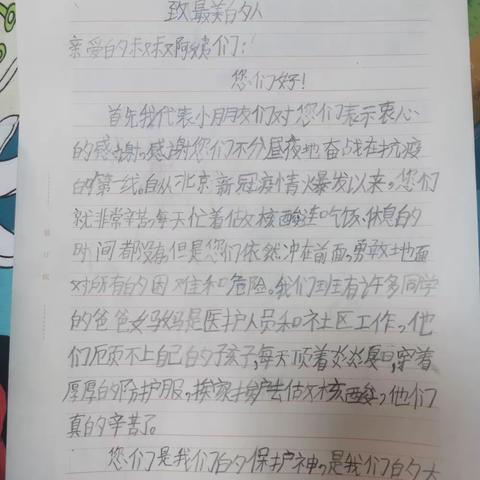 致最美的人
亲爱的叔叔阿姨们：
您们好！
首先我代表小朋友们对您们表示衷心
的感谢。感谢您们不分昼夜地奋战在抗疫
的第一线。自从北京新冠疫情爆发以来，您们
就非常辛苦，每天忙着做核酸连吃饭、休息的
时间都没有，但是您们依然冲在前面，勇敢地面
对所有的困难和危险。我们班有许多同学
的爸爸妈妈是医护人员和社区工作，他
们顾不上自己的孩子，每天顶着炎炎夏日，穿着
厚厚的防护服，挨家挨户去做核酸，他们
真的辛苦了。
您们是我们的保护神，是我们的大